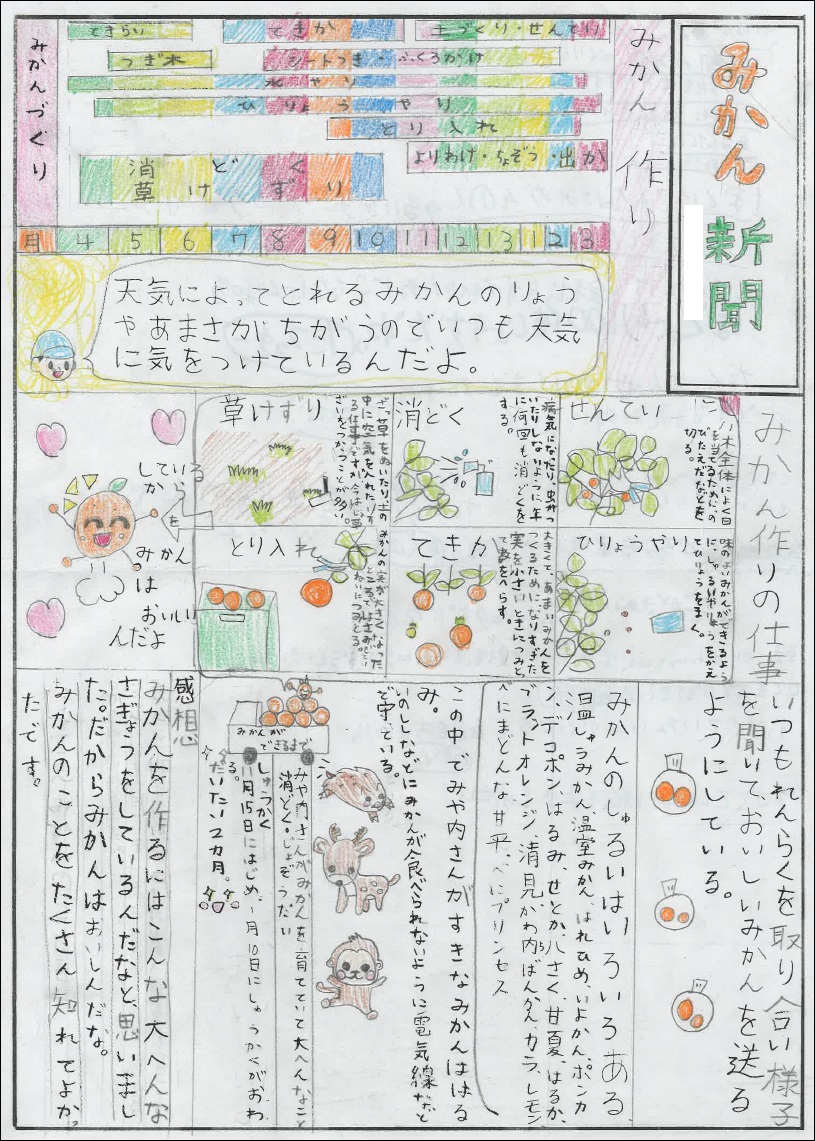 みかん
新聞
みかん作り
みかんづくり
てきらい
てきか
土づくり・せんてい
つぎ木
シートつき・ふくろかけ
水やり
ひりょうやり
とり入れ
よりわけ・ちょぞう・出か
消どく
草けずり
月 4 5 6 7 8 9 10 11 12 1 2 3
天気によってとれるみかんのりょう
やあまさがちがうのでいつも天気
に気をつけているんだよ。
みかん作りの仕事
せんてい
木全体によく日
を当てるために、の
びたえだなどを
切る。
消どく
病気になったり、虫がつ
いたりしないように、年
に何回も消どくを
する。
草けずり
ざっ草をぬいたり、土の
中に空気を入れたりす
る仕事ですが、今はじょ草
ざいをつかうことが多い。
ひりょうやり
味のよいみかんができるよう
に、しゅるいやりょうをかえ
てひりょうをまく。
てきか
大きくて、あまいみかんを
つくるために、なりすぎた
実を小さいときにつみと
って数をへらす。
とり入れ
みかんの実が大きくなった
ところではさみでて
いねいにつみとる。
している
から
みかん
は
おいしい
んだよ
いつもれんらくを取り合い様子
を聞いて、おいしいみかんを送る
ようにしている。
みかんのしゅるいはいろいろある、
温しゅうみかん、温室みかん、はれひめ、いよかん、ポンカ
ン、デコポン、はるみ、せとか、八さく、甘夏、はるか、
ブラットオレンジ、清見、かわ内ばんかん、カラ、レモン
べにまどんな、甘平、べにプリンセス
この中でみや内さんがすきなみかんははる
み。
いのししなどにみかんが食べられないように電気線だと
で守っている。
みかんが
できるまで
みや内さんがみかんを育てていて大へんなこと
消どく。じょぞうだい
しゅうかく
11月15日にはじめ、1月10日にしゅうかくがおわ
る。
だいたい2カ月。
感想
みかんを作るにはこんな大へんな
さぎょうをしているんだなと、思いまし
た。だからみかんはおいしんだな。
みかんのことをたくさん知れてよかっ
たです。